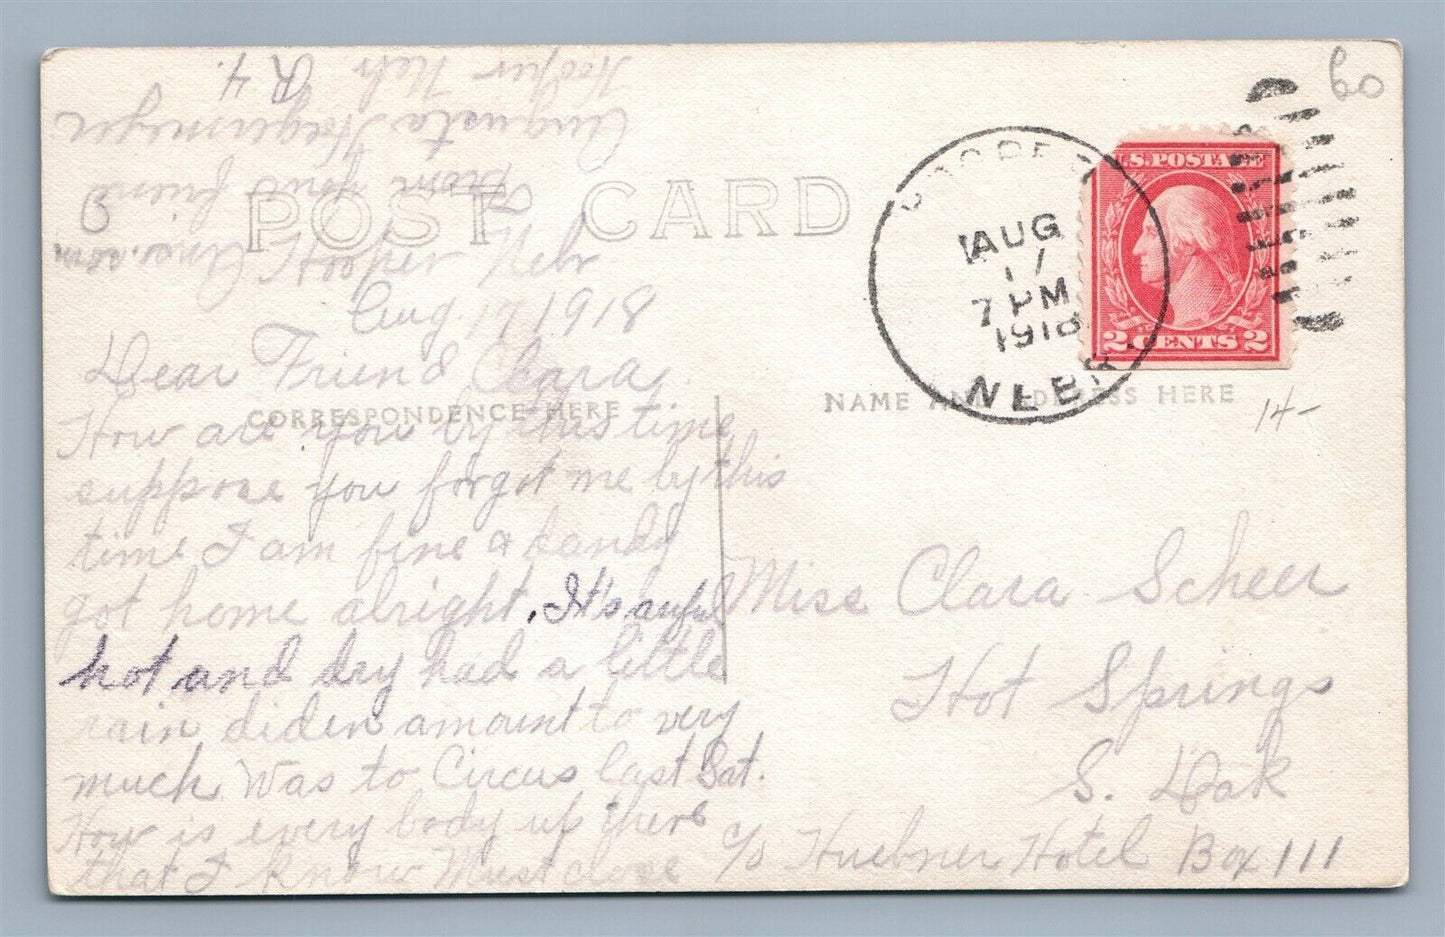 POST CARD
CORRESPONDENCE HERE
NAME AND ADDRESS HERE
Hooper Neb
Aug 17 1918
Dear Friend Clara.
How are you by this time
suppose you forgot me by this
time I am fine & dandy
got home alright. It's awful
hot and dry had a little
rain diden amount to very
much Was to Circus last Sat.
How is every body up there
that I know Must close
Answer
From your friend
Augusta
Hooper Neb R 4.
AUG
17
7 PM
1918
NEBR
U.S. POSTAGE
2 CENTS 2
60
14-
Miss Clara Scheer
Hot Springs
S. Dak
c/o Huebner Hotel Box 111